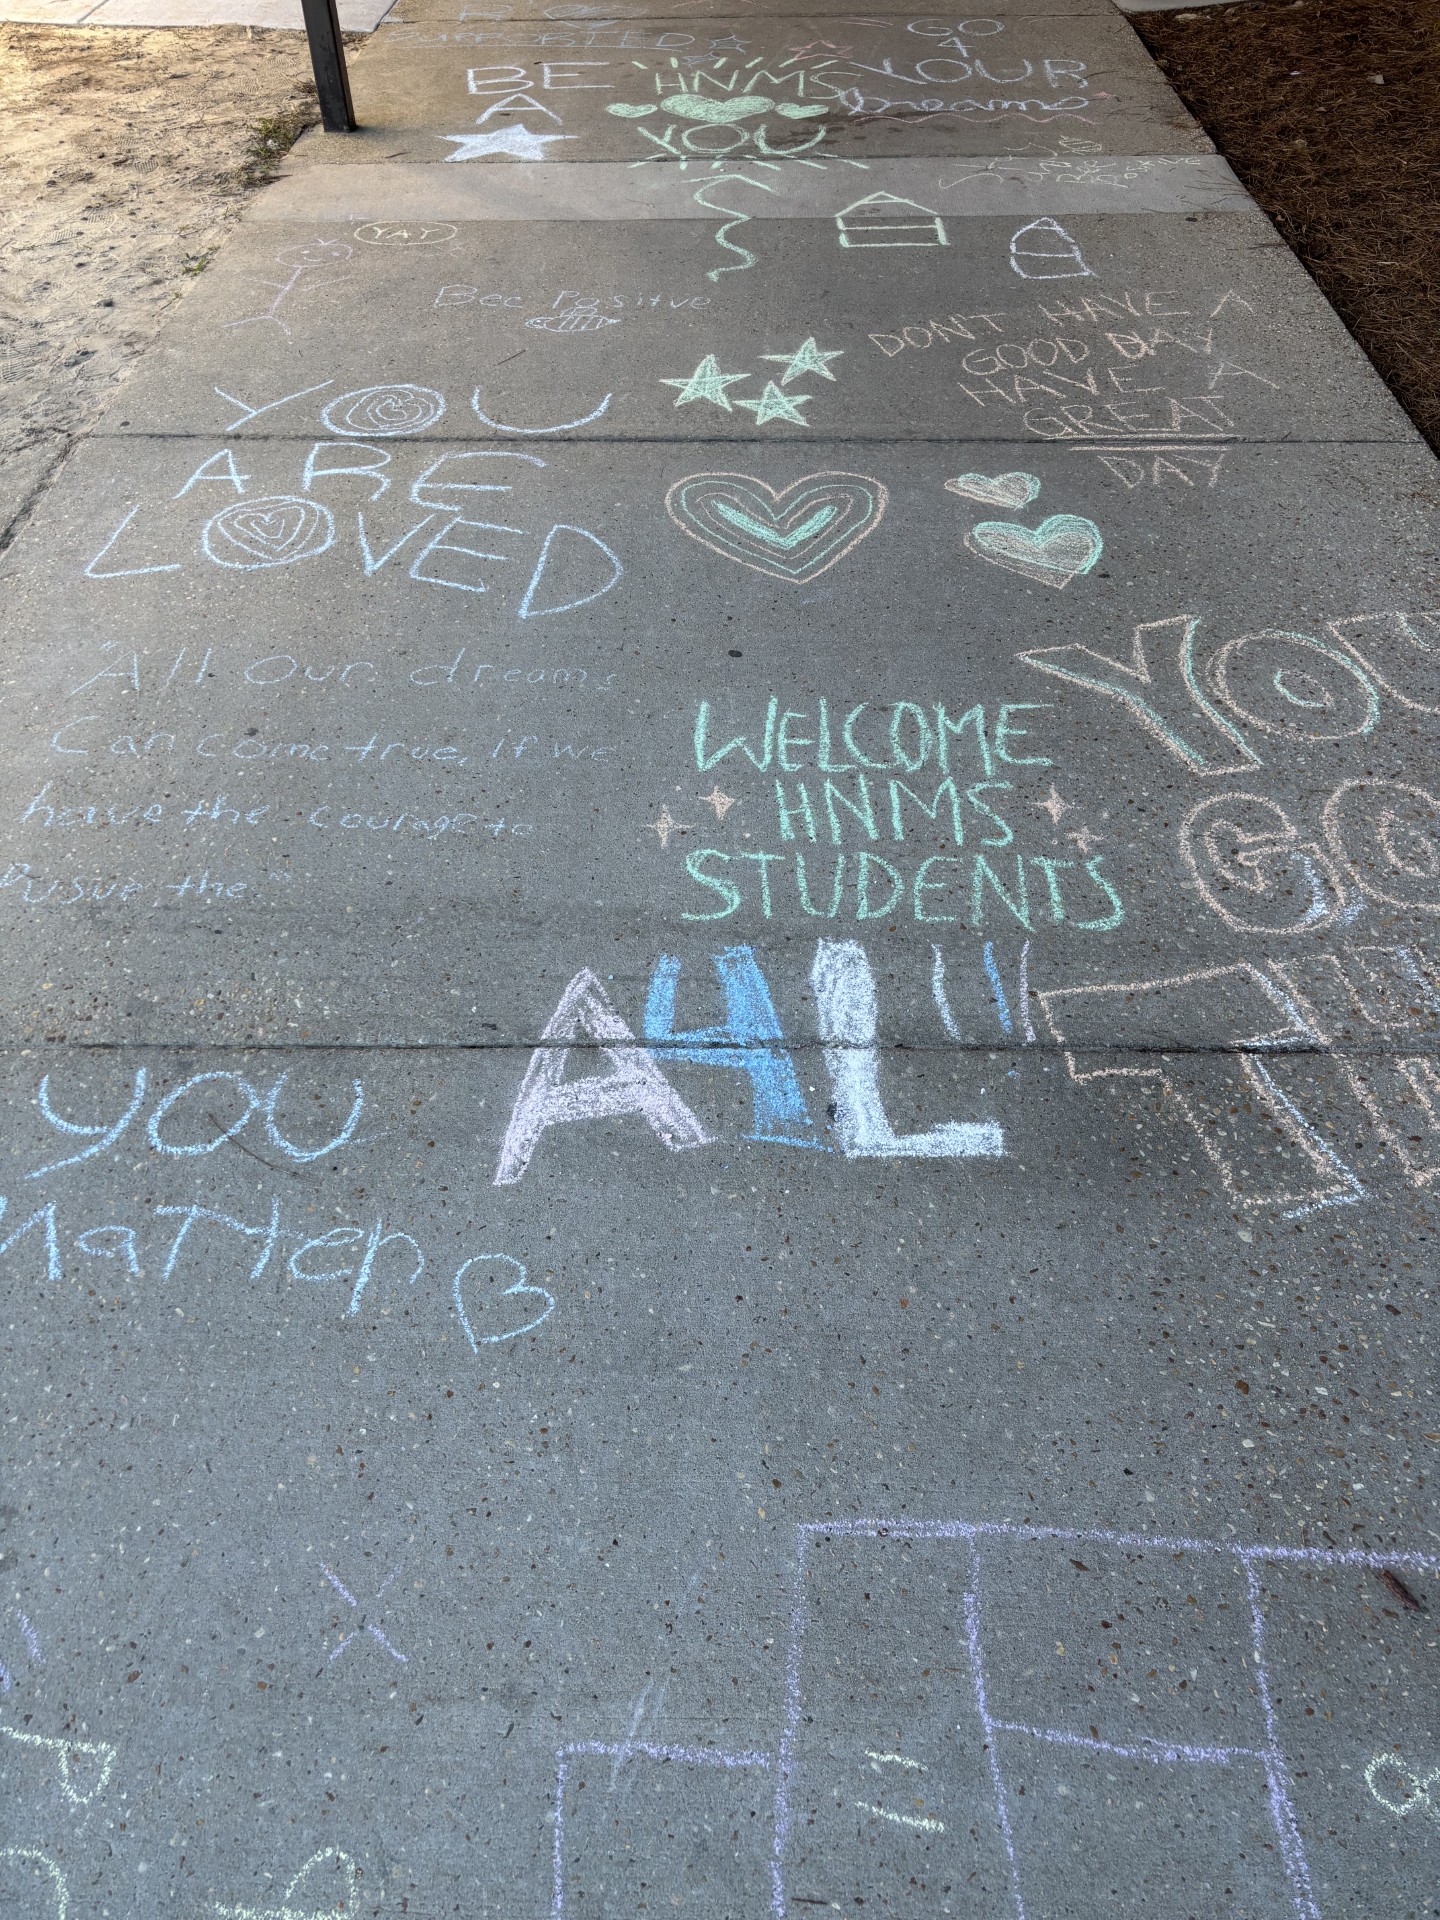 SUPPORTED
BE
A
HNMS
YOU
GO
4
YOUR
Dreams
Bee
Positive
YAY
Bee Positve
DON'T HAVE A
GOOD DAY
HAVE A
GREAT
DAY
YOU
ARE
LOVED
"All Our dreams
Can come true, if we
have the courage to
Pusue the"
WELCOME
HNMS
STUDENTS
YOU
GO
IT
A4L
YOU
Matter